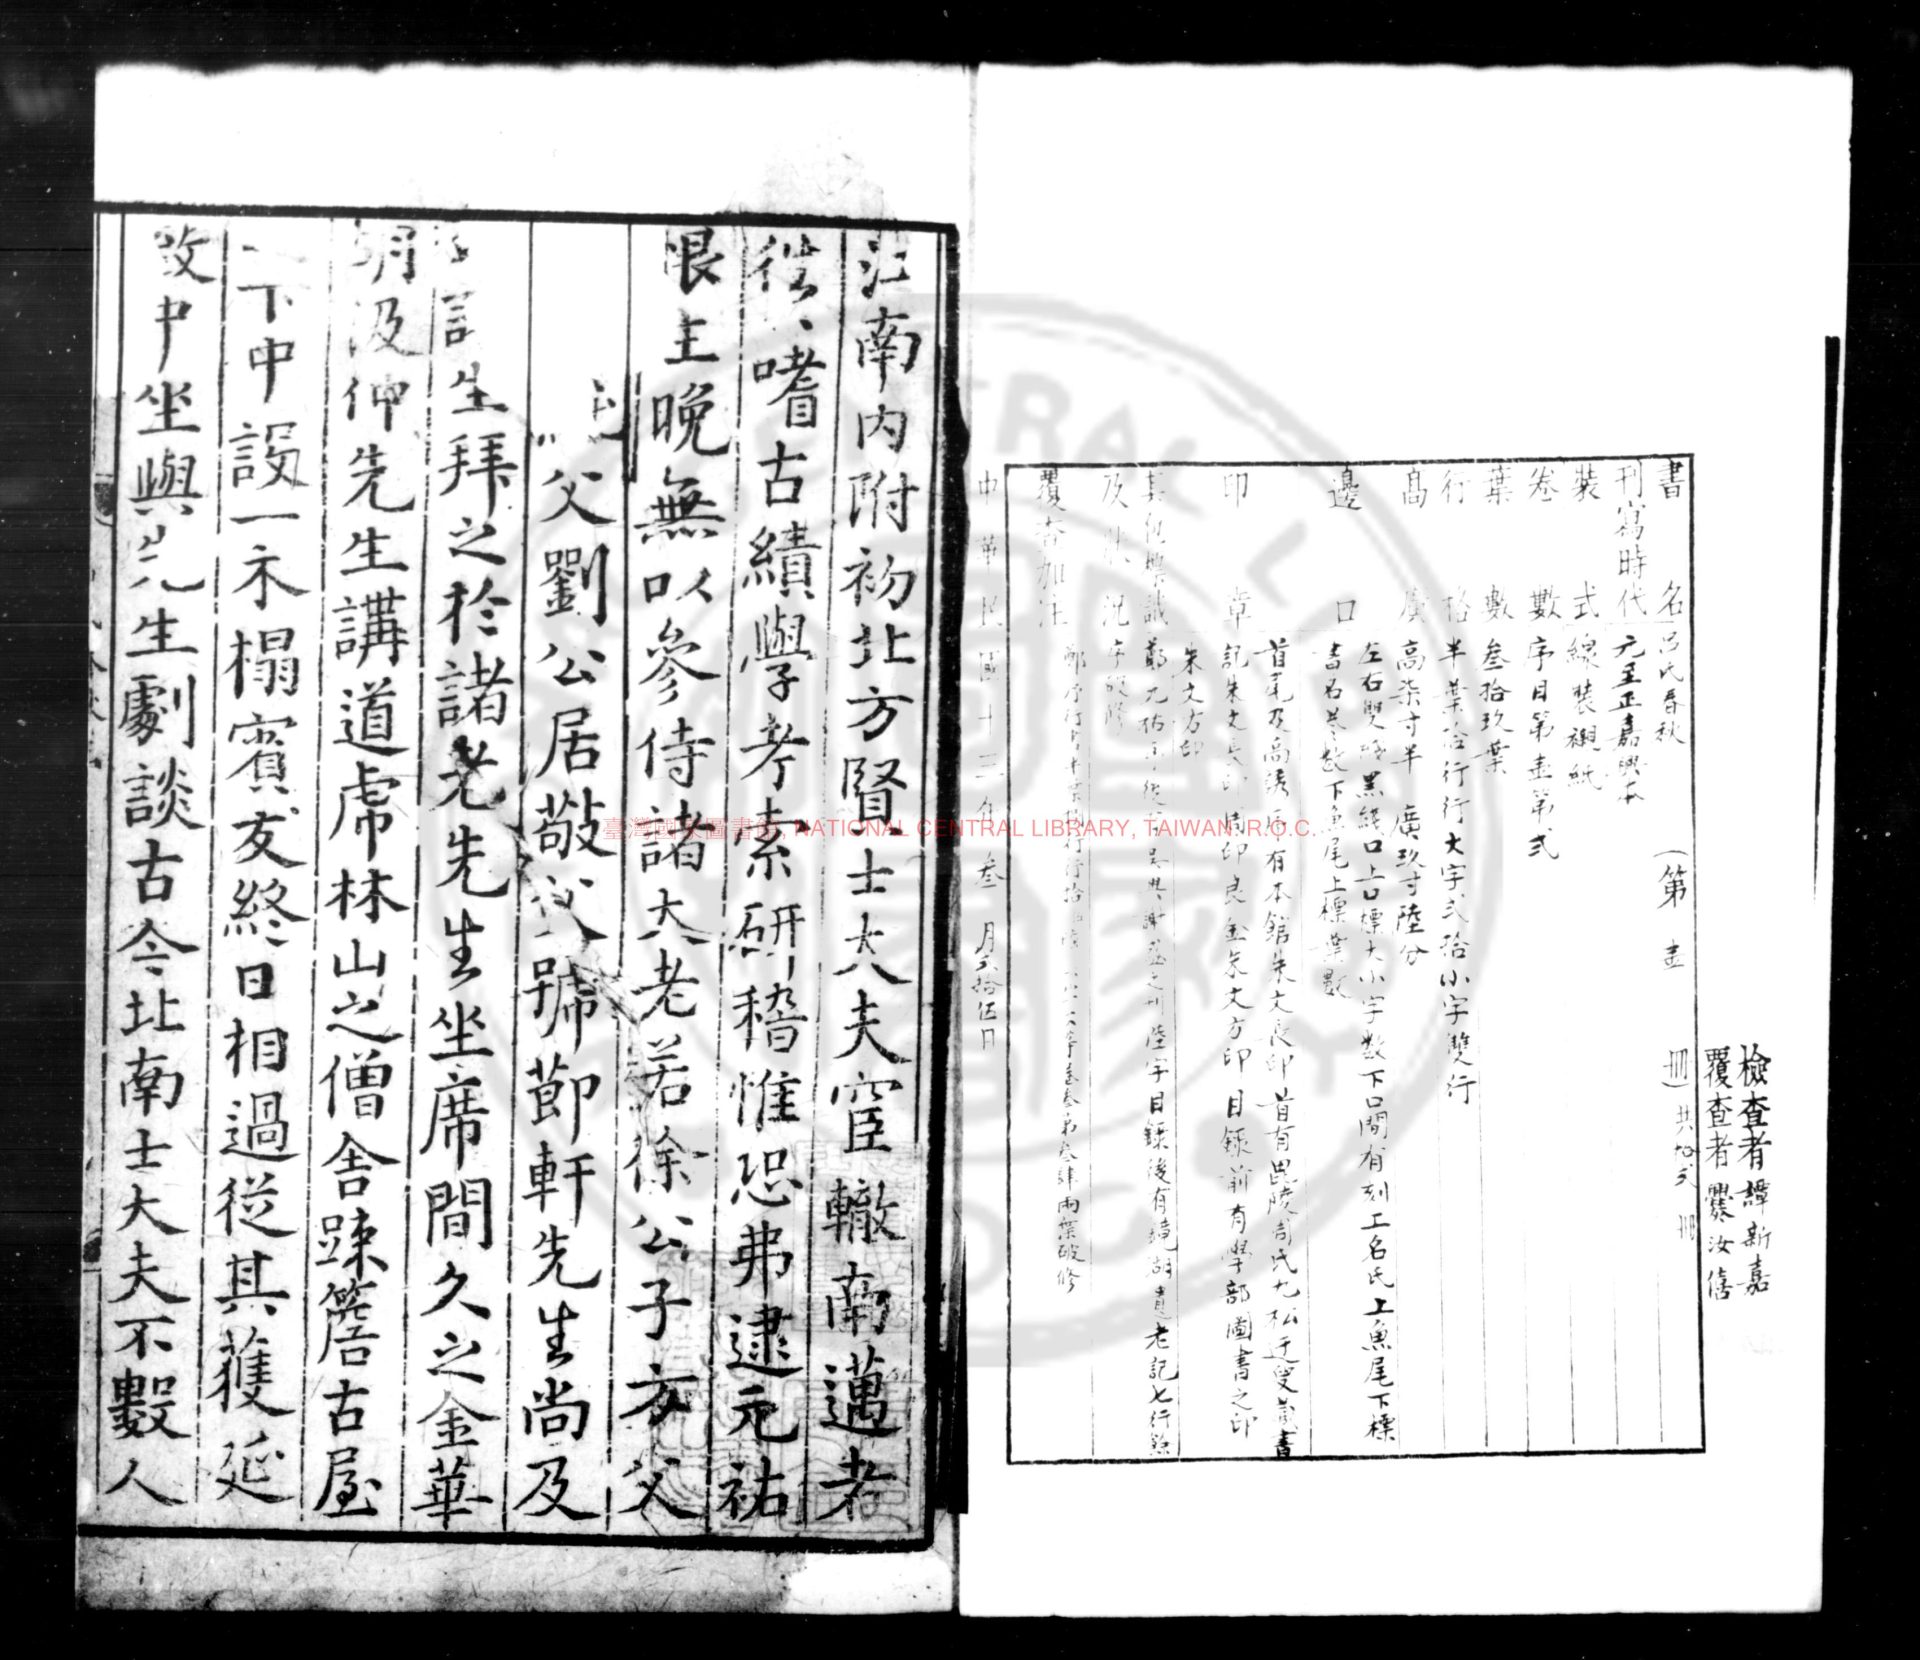 檢查者譚新嘉
覆查者爨汝僖
書名呂氏春秋(第壹冊)共拾弍冊
刊寫時代元至正嘉興本
裝式線裝襯紙
卷數序目第壹第弍
葉數叁拾玖葉
行格半葉拾行行大字弍拾小字雙行
高廣高柒寸半廣玖寸陸分
邊口左右雙線黑綫口上口標大小字數下口間有刻工名氏上魚尾下標
書名卷數下魚尾上標葉數
印章首尾及高誘序有本館朱文長印首有毘陵周氏九松迂叟藏書
記朱文長印周印良金朱文方印目錄前有學部圖書之印
朱文方印
其他標識鄭元祐序後有吳興謝盛之刊陸字目錄後有鏡湖遺老記七行餘
及狀況序破修
覆查加注
中華民國十三年叁月弍拾伍日
江南內附初北方賢士大夫宦轍南邁者
往往嗜古績學考索研稽惟恐弗逮元祐
恨生晚無以參侍諸大老若徐公子方父
父劉公居敬父號節軒先生尚及
生拜之於諸老先生坐席間久之金華
胡汲仲先生講道虎林山之僧舍踈簷古屋
下中設一木榻賓友終日相過從其獲延
致中坐與先生劇談古今北南士大夫不數人
臺灣國家圖書館, NATIONAL CENTRAL LIBRARY, TAIWAN. R.O.C.